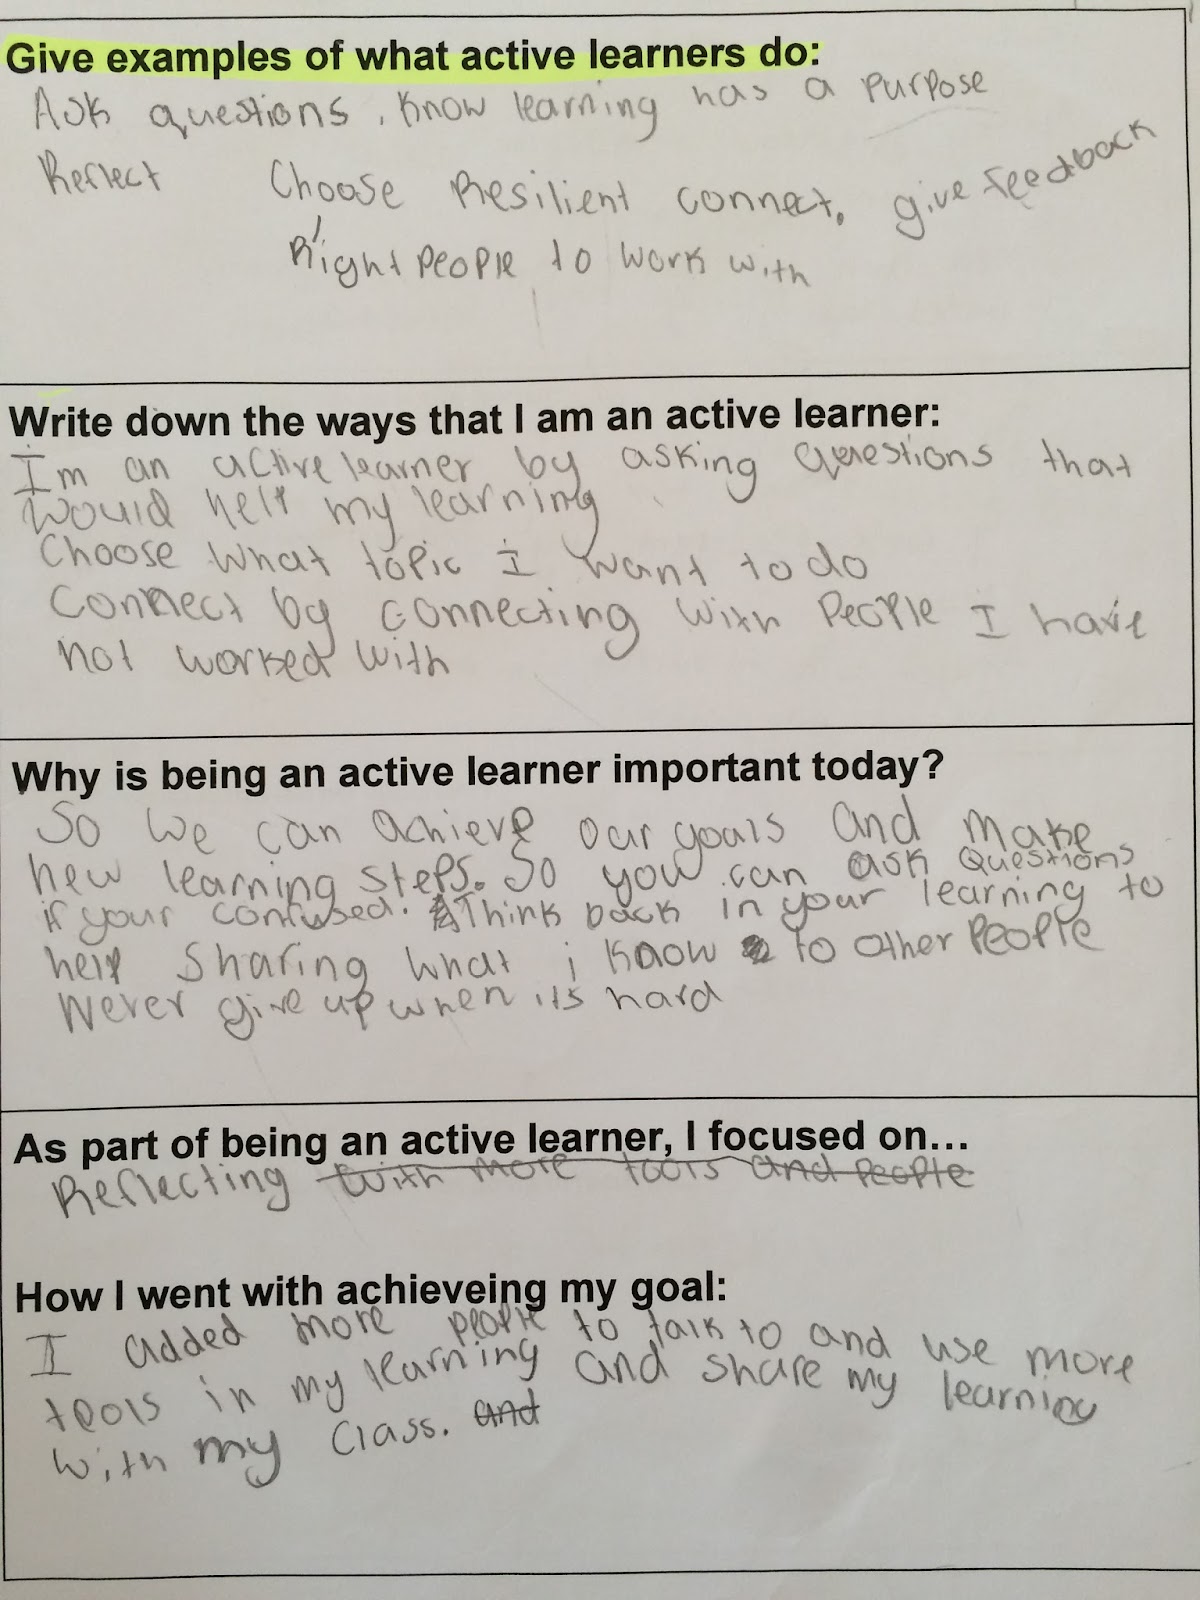 Give examples of what active learners do:
Ask questions, Know learning has a purpose
Reflect Choose Resilient connect, give feedback
Right People to work with
Write down the ways that I am an active learner:
Im an active learner by asking questions that
would help my learning
Choose what topic I want to do
Connect by connecting with People I have
not worked with
Why is being an active learner important today?
So we can achieve our goals and make
new learning steps. So you can ask Questions
if your confused. Think back in your learning to
help Sharing what i know to other People
Never give up when its hard
As part of being an active learner, I focused on...
Reflecting with more tools and people
How I went with achieveing my goal:
I added more people to talk to and use more
tools in my learning and share my learning
with my class. and